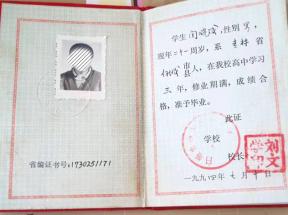 学生闫晓成,性别男,
现年二十一周岁,系吉林省
市
县人,在我校高中学习
三年,修业期满,成绩合
格,准予毕业。
此证
学校
校长
一九九四年七月
省编证书号:1730251171
刘文
学印